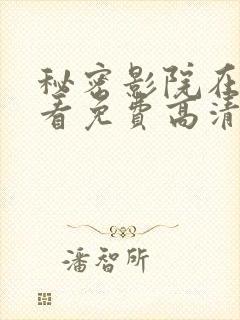 秘密影院在
看免费高清
潘智所